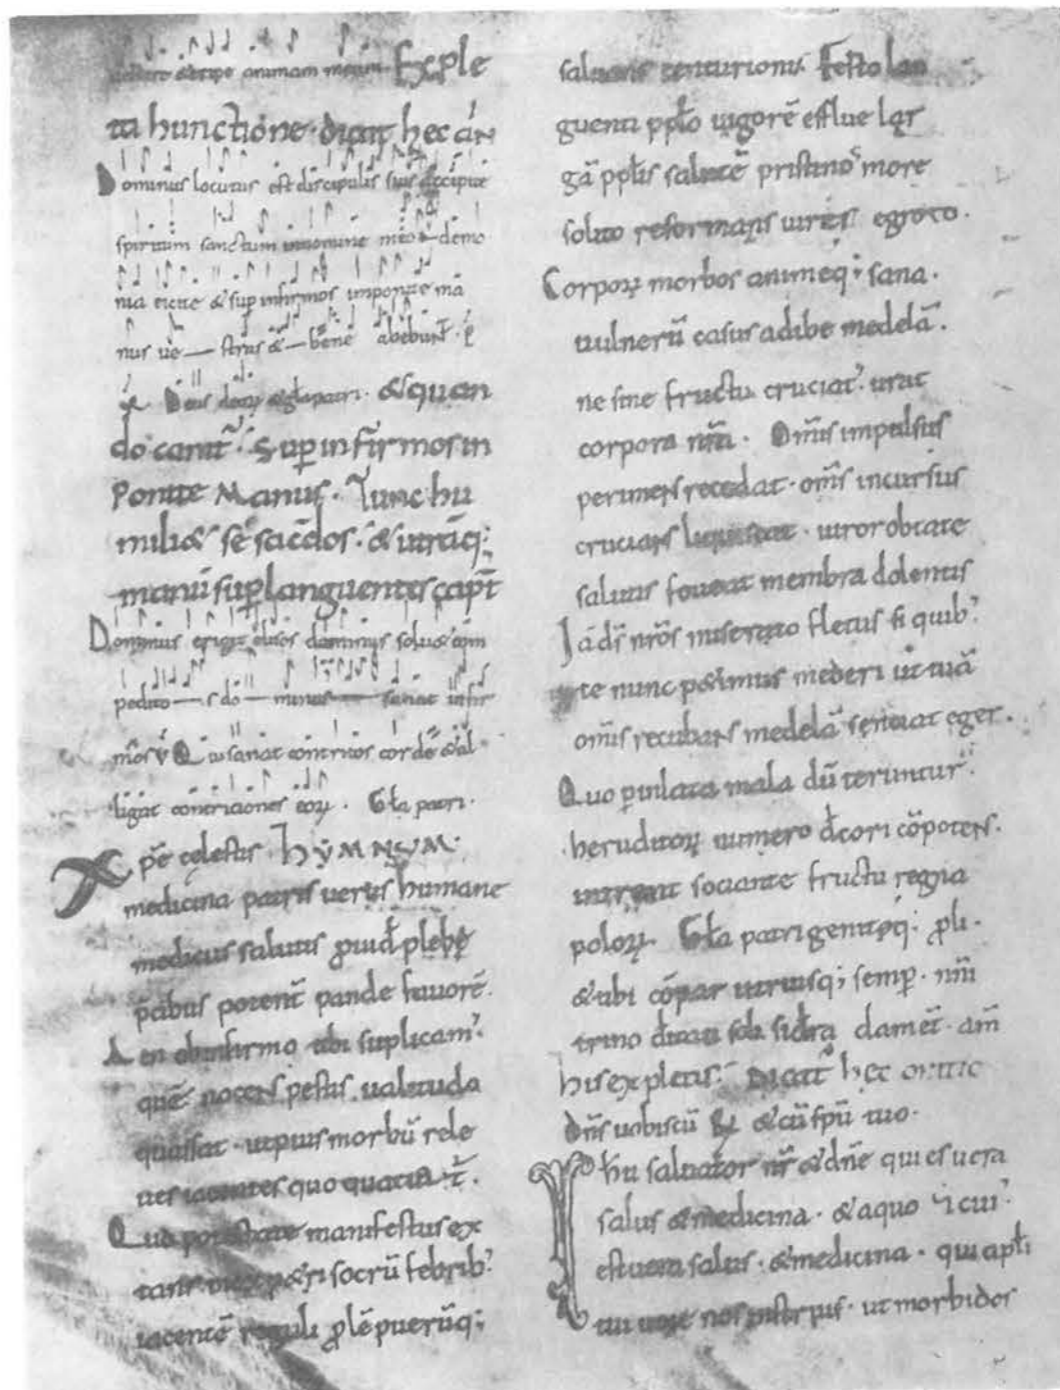 animam meam Exple
ta hunctione · dicat hec añ
Dominus locutus est discipulis suis accipite
spiritum sanctum innomine meo demo
nia eicite & sup infirmos imponite mā
nus ue — stras & — bene abebunt̄ · p̄
Deus deoꝝ & gl̄a patri · & quan
do canit̄ · Sup infirmos in
ponite Manus · Tunc hu
mili& sē sac̄dos · & utrāq;
manū sup languentes cap̄t
Dominus erigit elisos dominus solu& cōm
pedito — s do — minus — sanat infir
mōs V̄ Qui sanat contritos corde & al
ligat contriciones eoꝝ · Gl̄a patri ·
Xpē cęlestis · HYMNUM ·
medicina patris uerus humane
medicus salutis ꝓuidę plebę
p̄cibus potent̄ pande fauorē ·
En obinfirmo tibi suplicam᾽
quē nocens pestis ualitudo
quassat · ut pius morbū rele
ues iacentes quo quatit̄ ·
Qua potestate manifestus ex
tans petri socrū febrib᾽
iacentē reguli ꝓlē puerūq;
saluans centurionis · Festo lan
guenti pp̄lo uigorē efflue lar
gā pp̄lis salutē pristino more
solito reformans uires egroto ·
Corpoꝝ morbos animeq; sana ·
uulnerū casus adibe medelā ·
ne sine fructu cruciat᾽ urat
corpora nr̄a · Om̄is impulsus
perimens recedat · om̄s incursus
crucians liquescat · uiror obtate
salutis foueat membra dolentis
Iā ds̄ nr̄os miserato fletus si quib᾽
te nunc p&imus mederi ut tuā
om̄is recubans medelā senciat eger ·
Quo p inlata mala dū teruntur
heruditoꝝ numero d̄cori cōpotens ·
intrent sociante fructu regna
poloꝝ · Gl̄a patri genitoq; ꝓli ·
& tibi cōpar utriusq; semp · nm̄
trino d̄itati soli sid̄ra damet̄ · am̄
his expletis · Dicat hec oratio
Dn̄s uobiscū & cū spū tuo ·
Ihu saluator nr̄ & dn̄e qui es uera
salus & medicina · & a quo & cui᾽
est uera salus · & medicina · qui apl̄i
tui uoce nos instruis · ut morbidos